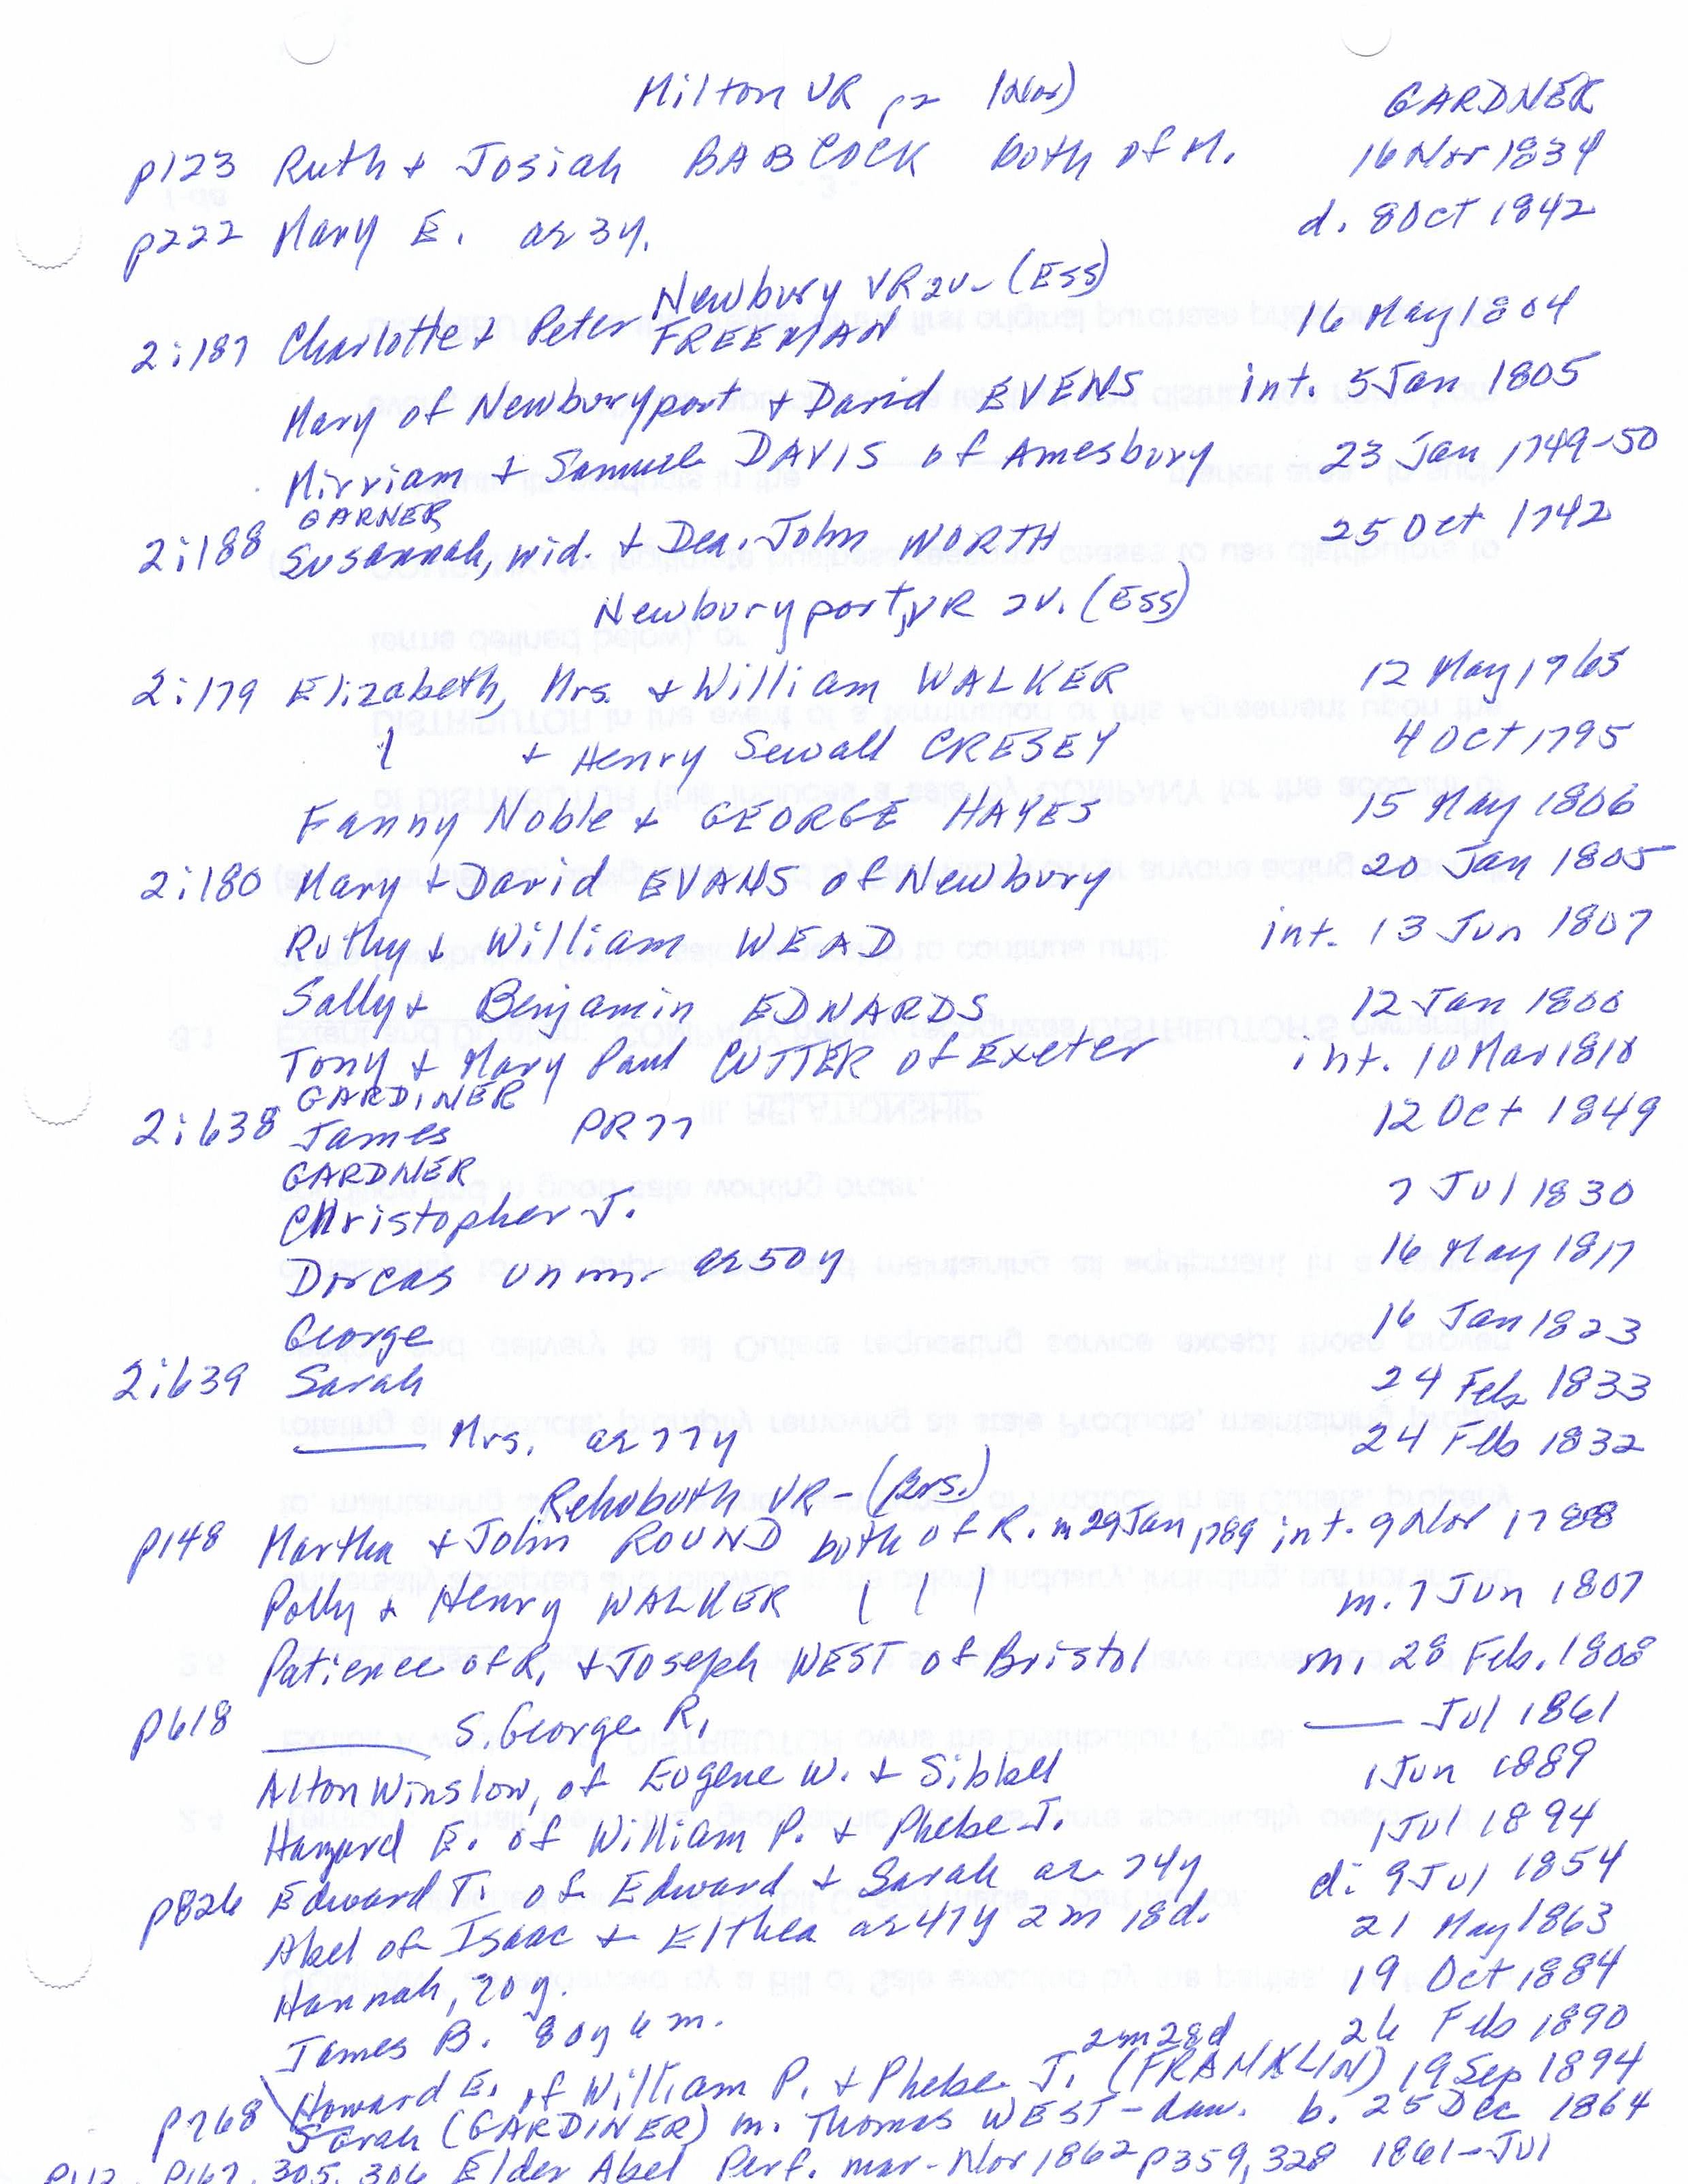 Milton VR (Nor) GARDNER
p123 Ruth + Josiah BABCOCK both of M. 16 Nov 1834
p222 Mary E. ae 3y. d. 8 Oct 1842
Newbury VR 2v - (Ess)
2:187 Charlotte + Peter FREEMAN 16 May 1804
Mary of Newburyport + David EVENS int. 5 Jan 1805
Mirriam + Samuel DAVIS of Amesbury 23 Jan 1749-50
GARNER
2:188 Susannah, wid. + Dea. John NORTH 25 Oct 1742
Newburyport, VR 2v. (Ess)
2:179 Elizabeth, Mrs. + William WALKER 12 May 1765
+ Henry Sewall CRESEY 4 Oct 1795
Fanny Noble + GEORGE HAYES 15 May 1806
2:180 Mary + David EVANS of Newbury 20 Jan 1805
Ruthy + William WEAD int. 13 Jun 1807
Sally + Benjamin EDWARDS 12 Jan 1800
Tony + Mary Paul CUTTER of Exeter int. 10 Mar 1810
GARDINER
2:638 James PR77 12 Oct 1849
GARDNER
Christopher J. 7 Jul 1830
Dorcas unm. ae 50y 16 May 1817
George 16 Jan 1823
2:639 Sarah 24 Feb 1833
—— Mrs. ae 77y 24 Feb 1832
Rehoboth VR - (Brs.)
p148 Martha + John ROUND both of R. m 29 Jan 1789 int. 9 Nov 1788
Polly + Henry WALKER ( ( ( m. 7 Jun 1807
Patience of R. + Joseph WEST of Bristol m. 28 Feb. 1808
p618 —— S. George R. —— Jul 1861
Alton Winslow, of Eugene W. + Sibbell 1 Jun 1889
Hazard E. of William P. + Phebe J. 1 Jul 1894
p826 Edward T. of Edward + Sarah ae 74y d. 9 Jul 1854
Abel of Isaac + Elthea ae 47y 2m 18d. 21 May 1863
Hannah, 70y. 19 Oct 1884
James B. 80y 6m. 26 Feb 1890
Howard E. of William P. + Phebe J. (FRANKLIN) 2m 28d 19 Sep 1894
p768 Sarah (GARDINER) m. Thomas WEST - dau. b. 25 Dec 1864
p112, p167, 305, 306 Elder Abel Perf. mar - Nov 1862 p359, 328 1861 - Jul